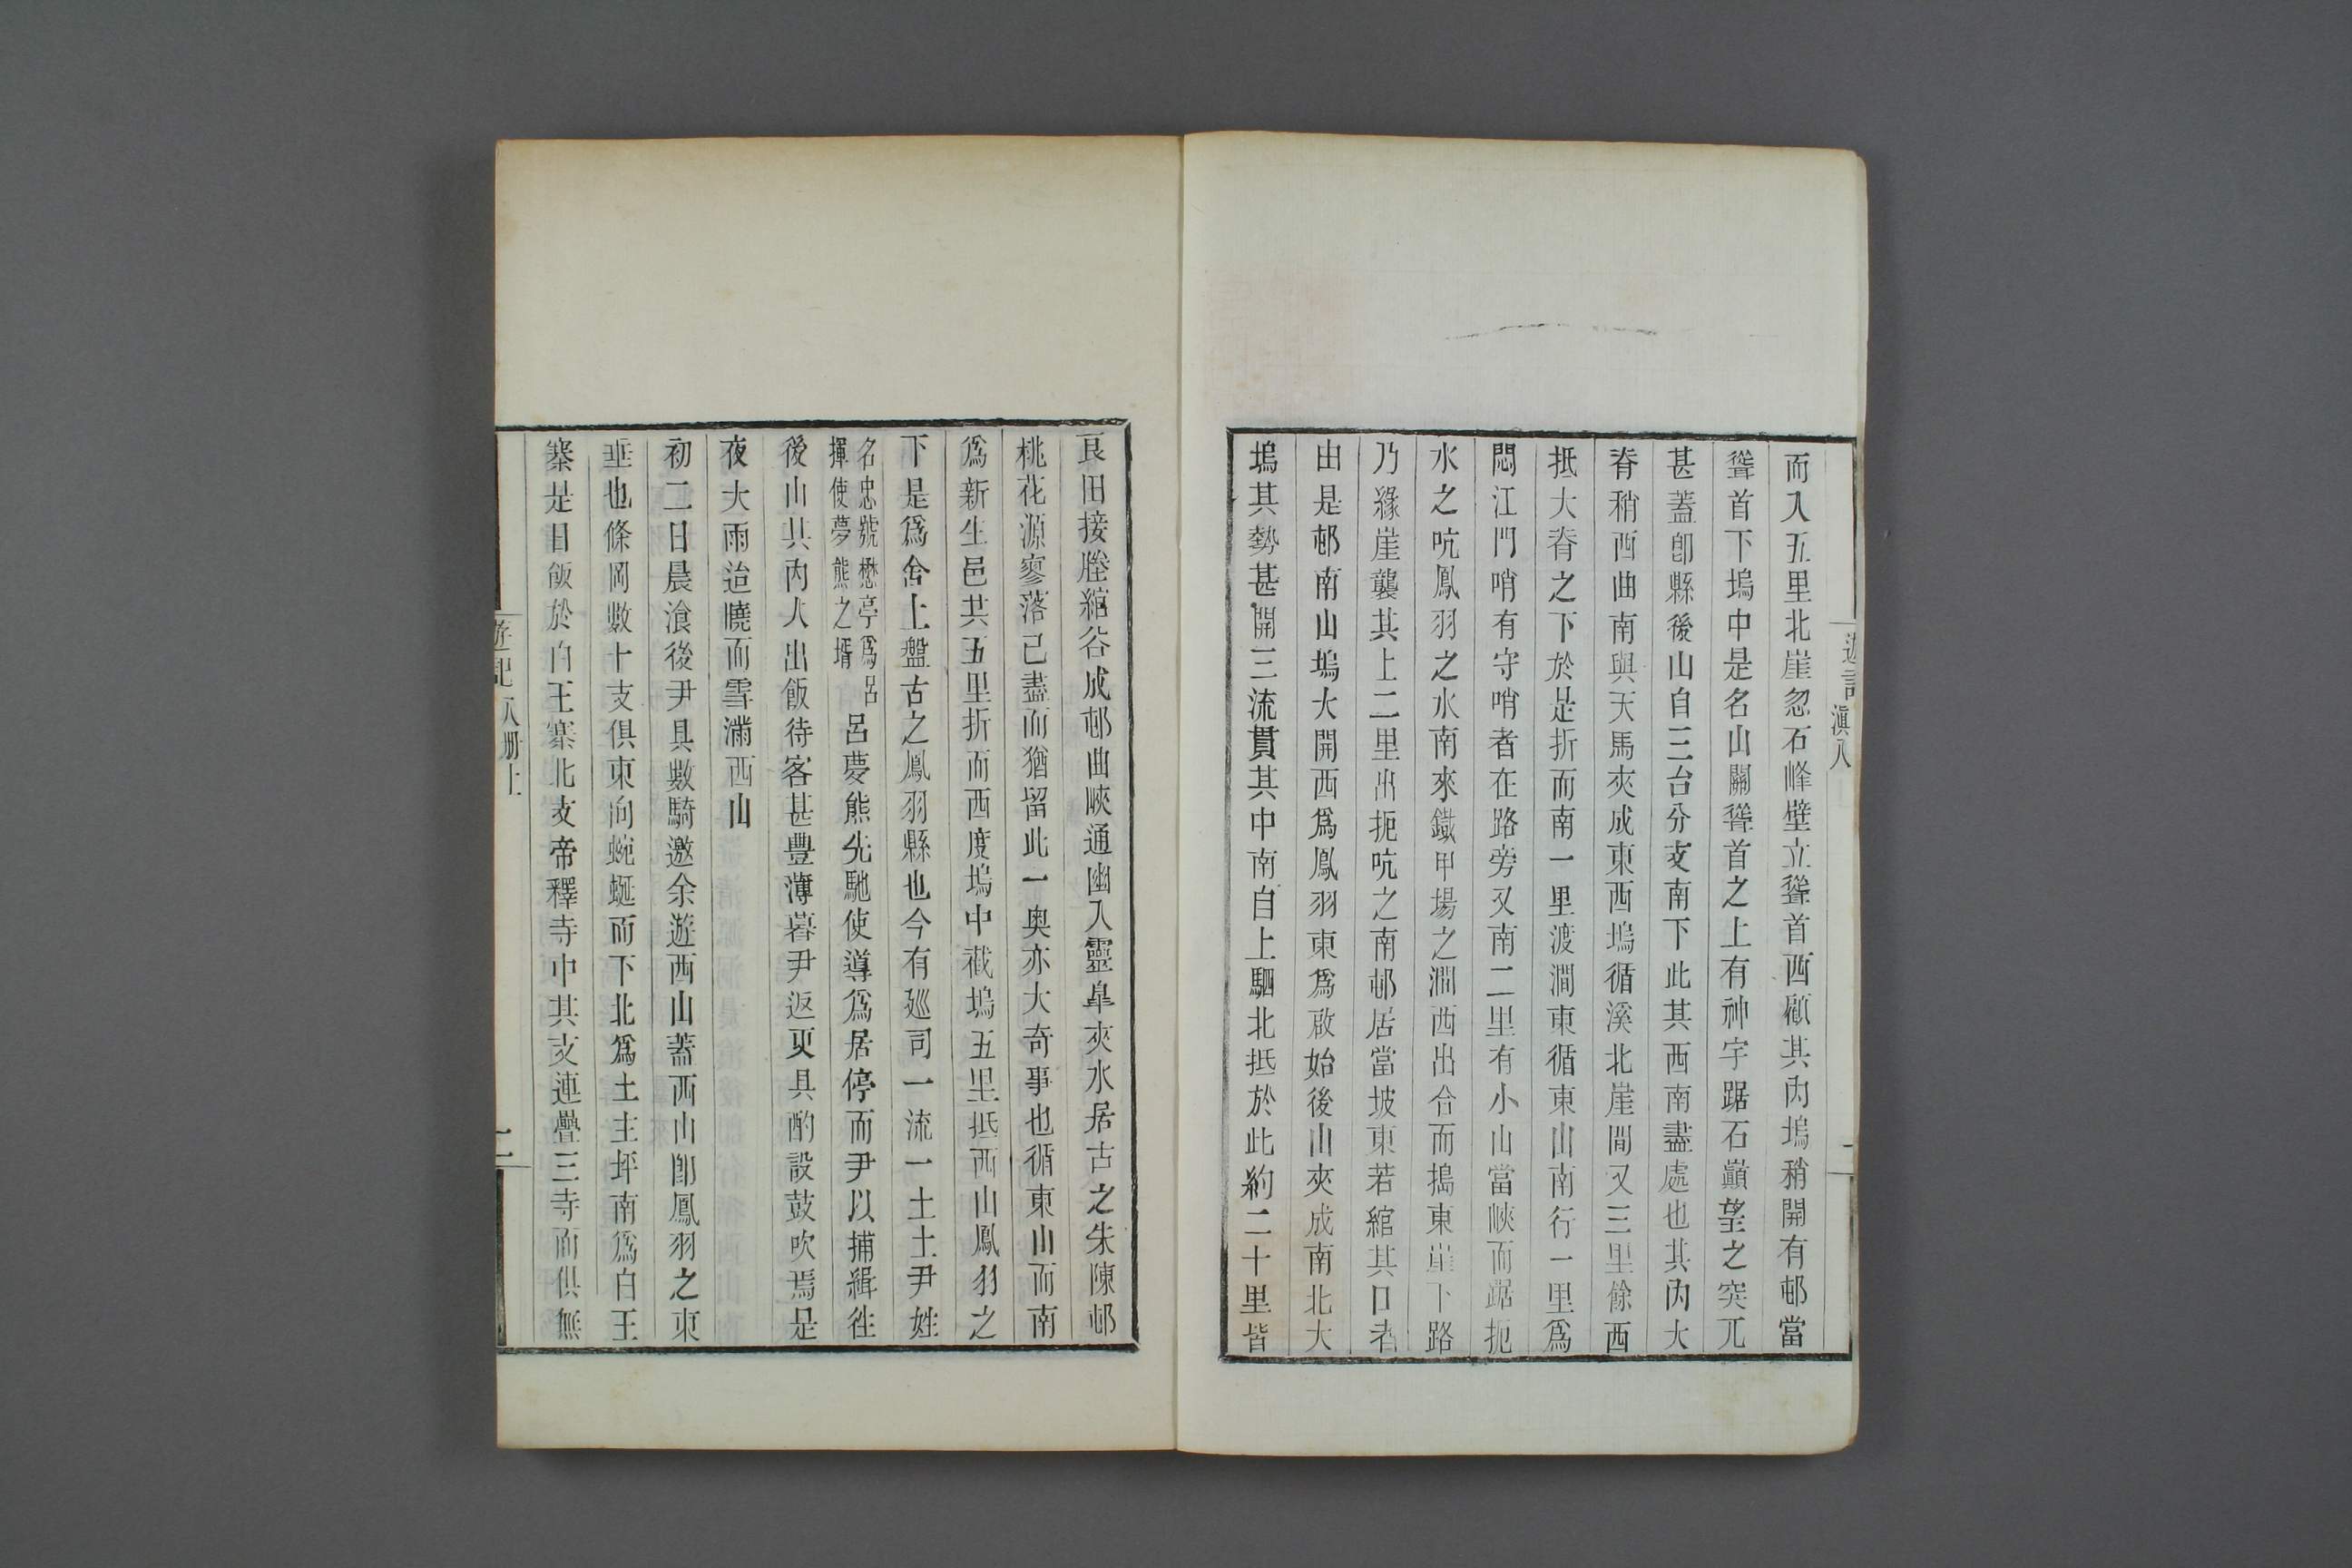 遊記 滇八 二
而入五里北崖忽石峰壁立聳首西顧其內塢稍開有邨當
聳首下塢中是名山關聳首之上有神宇踞石巔望之突兀
甚蓋卽縣後山自三台分支南下此其西南盡處也其內大
脊稍西曲南與天馬夾成東西塢循溪北崖間又三里餘西
抵大脊之下於是折而南一里渡澗東循東山南行一里爲
悶江門哨有守哨者在路旁又南二里有小山當峽而踞扼
水之吭鳳羽之水南來鐵甲場之澗西出合而搗東崖下路
乃緣崖襲其上二里出扼吭之南邨居當坡東若綰其口者
由是邨南山塢大開西爲鳳羽東爲啟始後山夾成南北大
塢其勢甚開三流貫其中南自上駟北抵於此約二十里皆
良田接塍綰谷成邨曲峽通幽入靈臯夾水居古之朱陳邨
桃花源寥落已盡而猶留此一奥亦大奇事也循東山而南
爲新生邑共五里折而西度塢中截塢五里抵西山鳳羽之
下是爲舍上盤古之鳳羽縣也今有廵司一流一土土尹姓
名忠號懋亭爲呂
揮使夢熊之壻
呂慶熊先馳使導爲居停而尹以捕緝往
後山共內人出飯待客甚豐薄暮尹返更具酌設鼓吹焉是
夜大雨迨曉而雪滿西山
初二日晨湌後尹具數騎邀余遊西山蓋西山卽鳳羽之東
垂也條岡數十支俱東向蜿蜒而下北爲土主坪南爲白王
寨是日飯於白王寨北支帝釋寺中其支連疊三寺而俱無
遊記 八册上 二